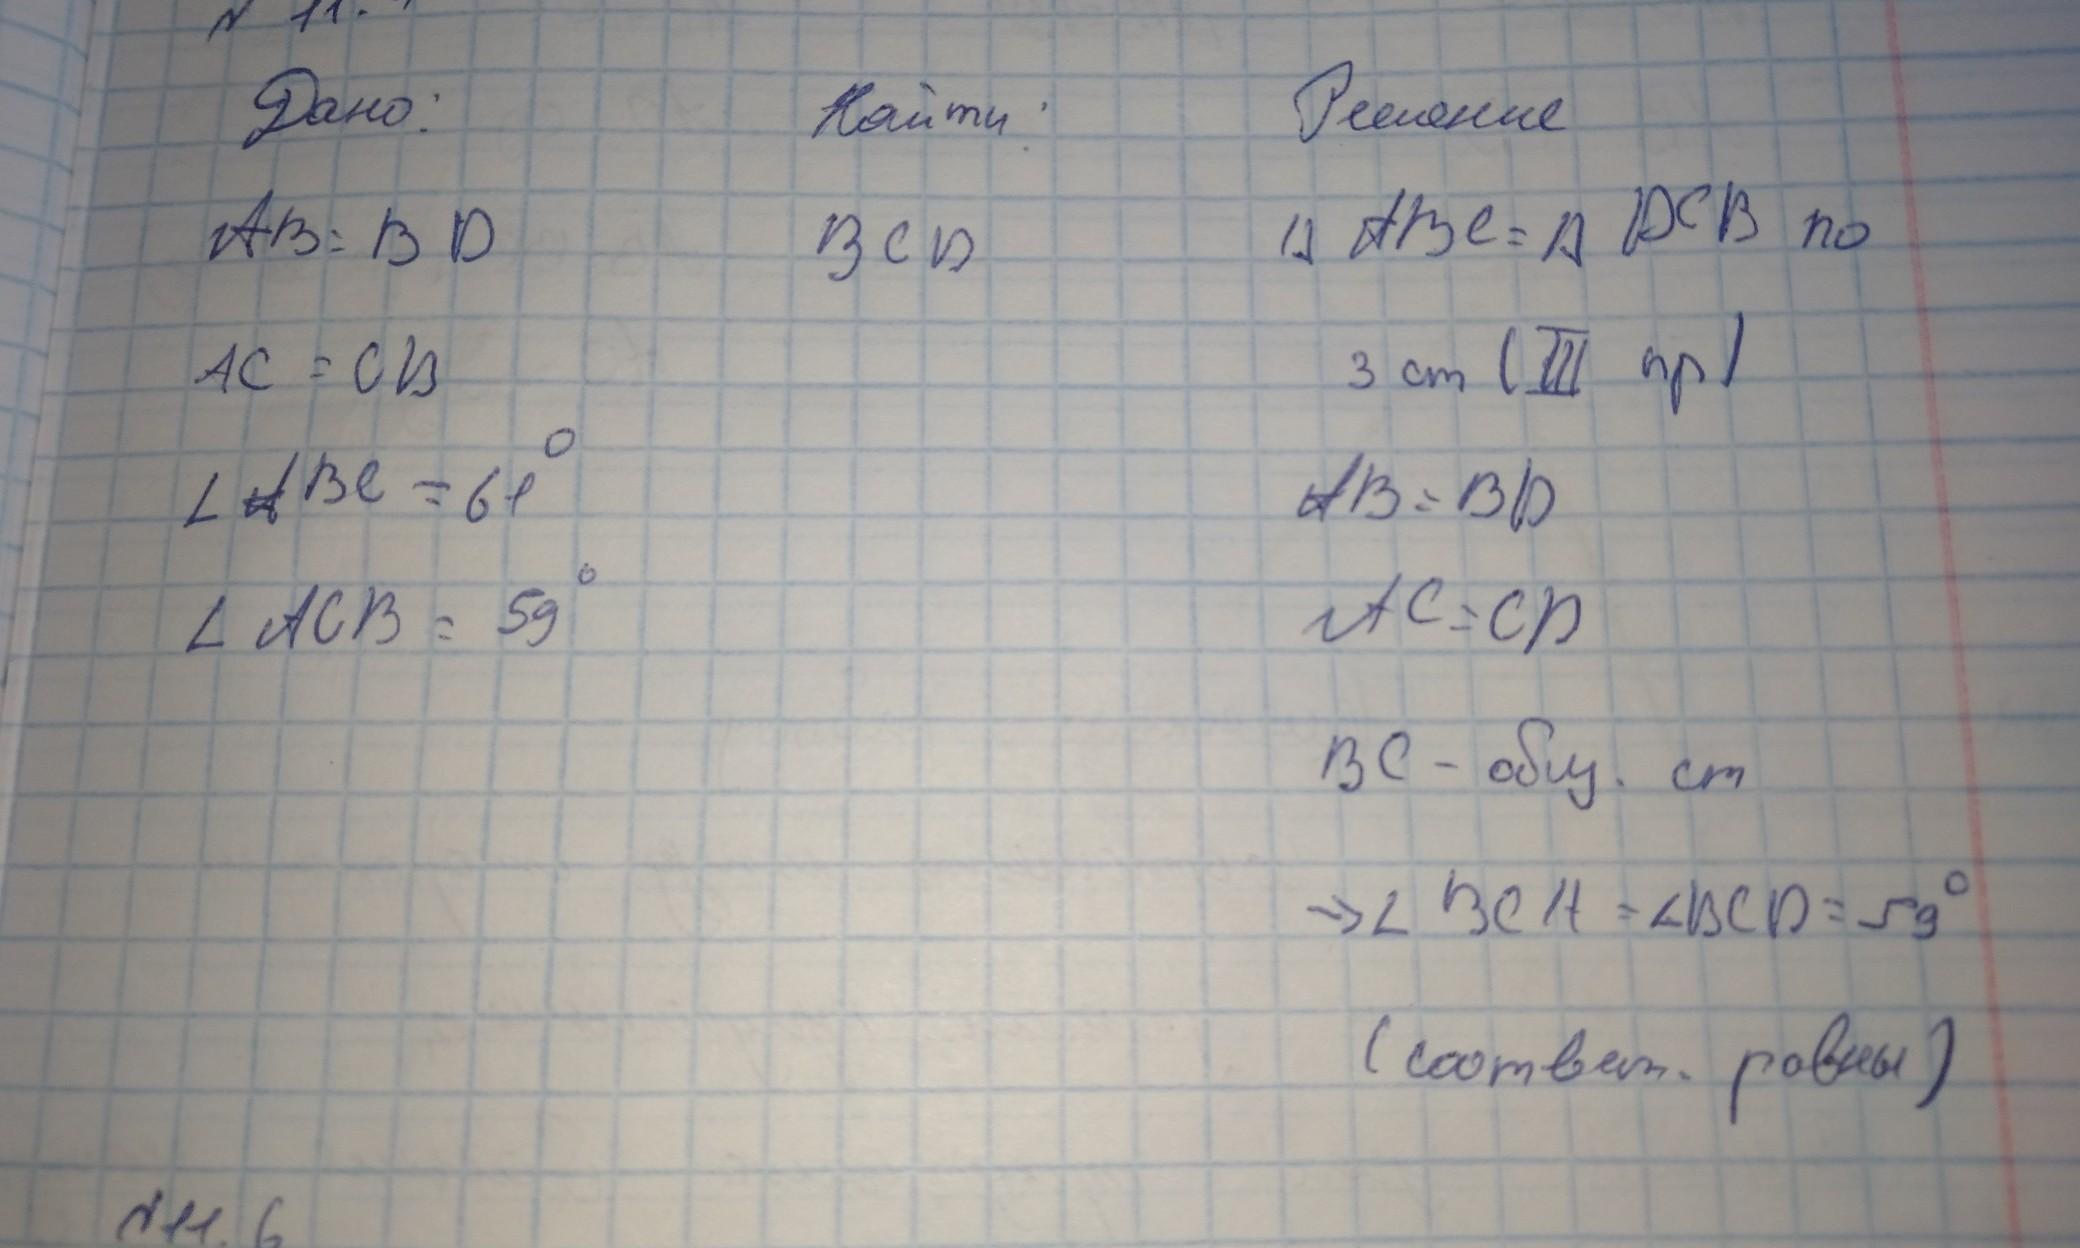 N 11.
Дано:
AB = BD
AC = CD
∠ ABC = 61°
∠ ACB = 59°
Найти:
BCD
Решение
1) ABC = Δ DCB по
3 ст (III пр)
AB = BD
AC = CD
BC - общ. ст
→ ∠ BCA = ∠BCD = 59°
(соответ. равны)
N 11. 6